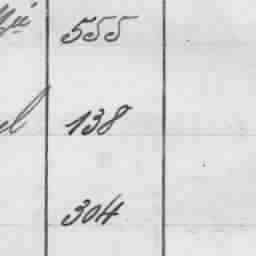 555
138
304